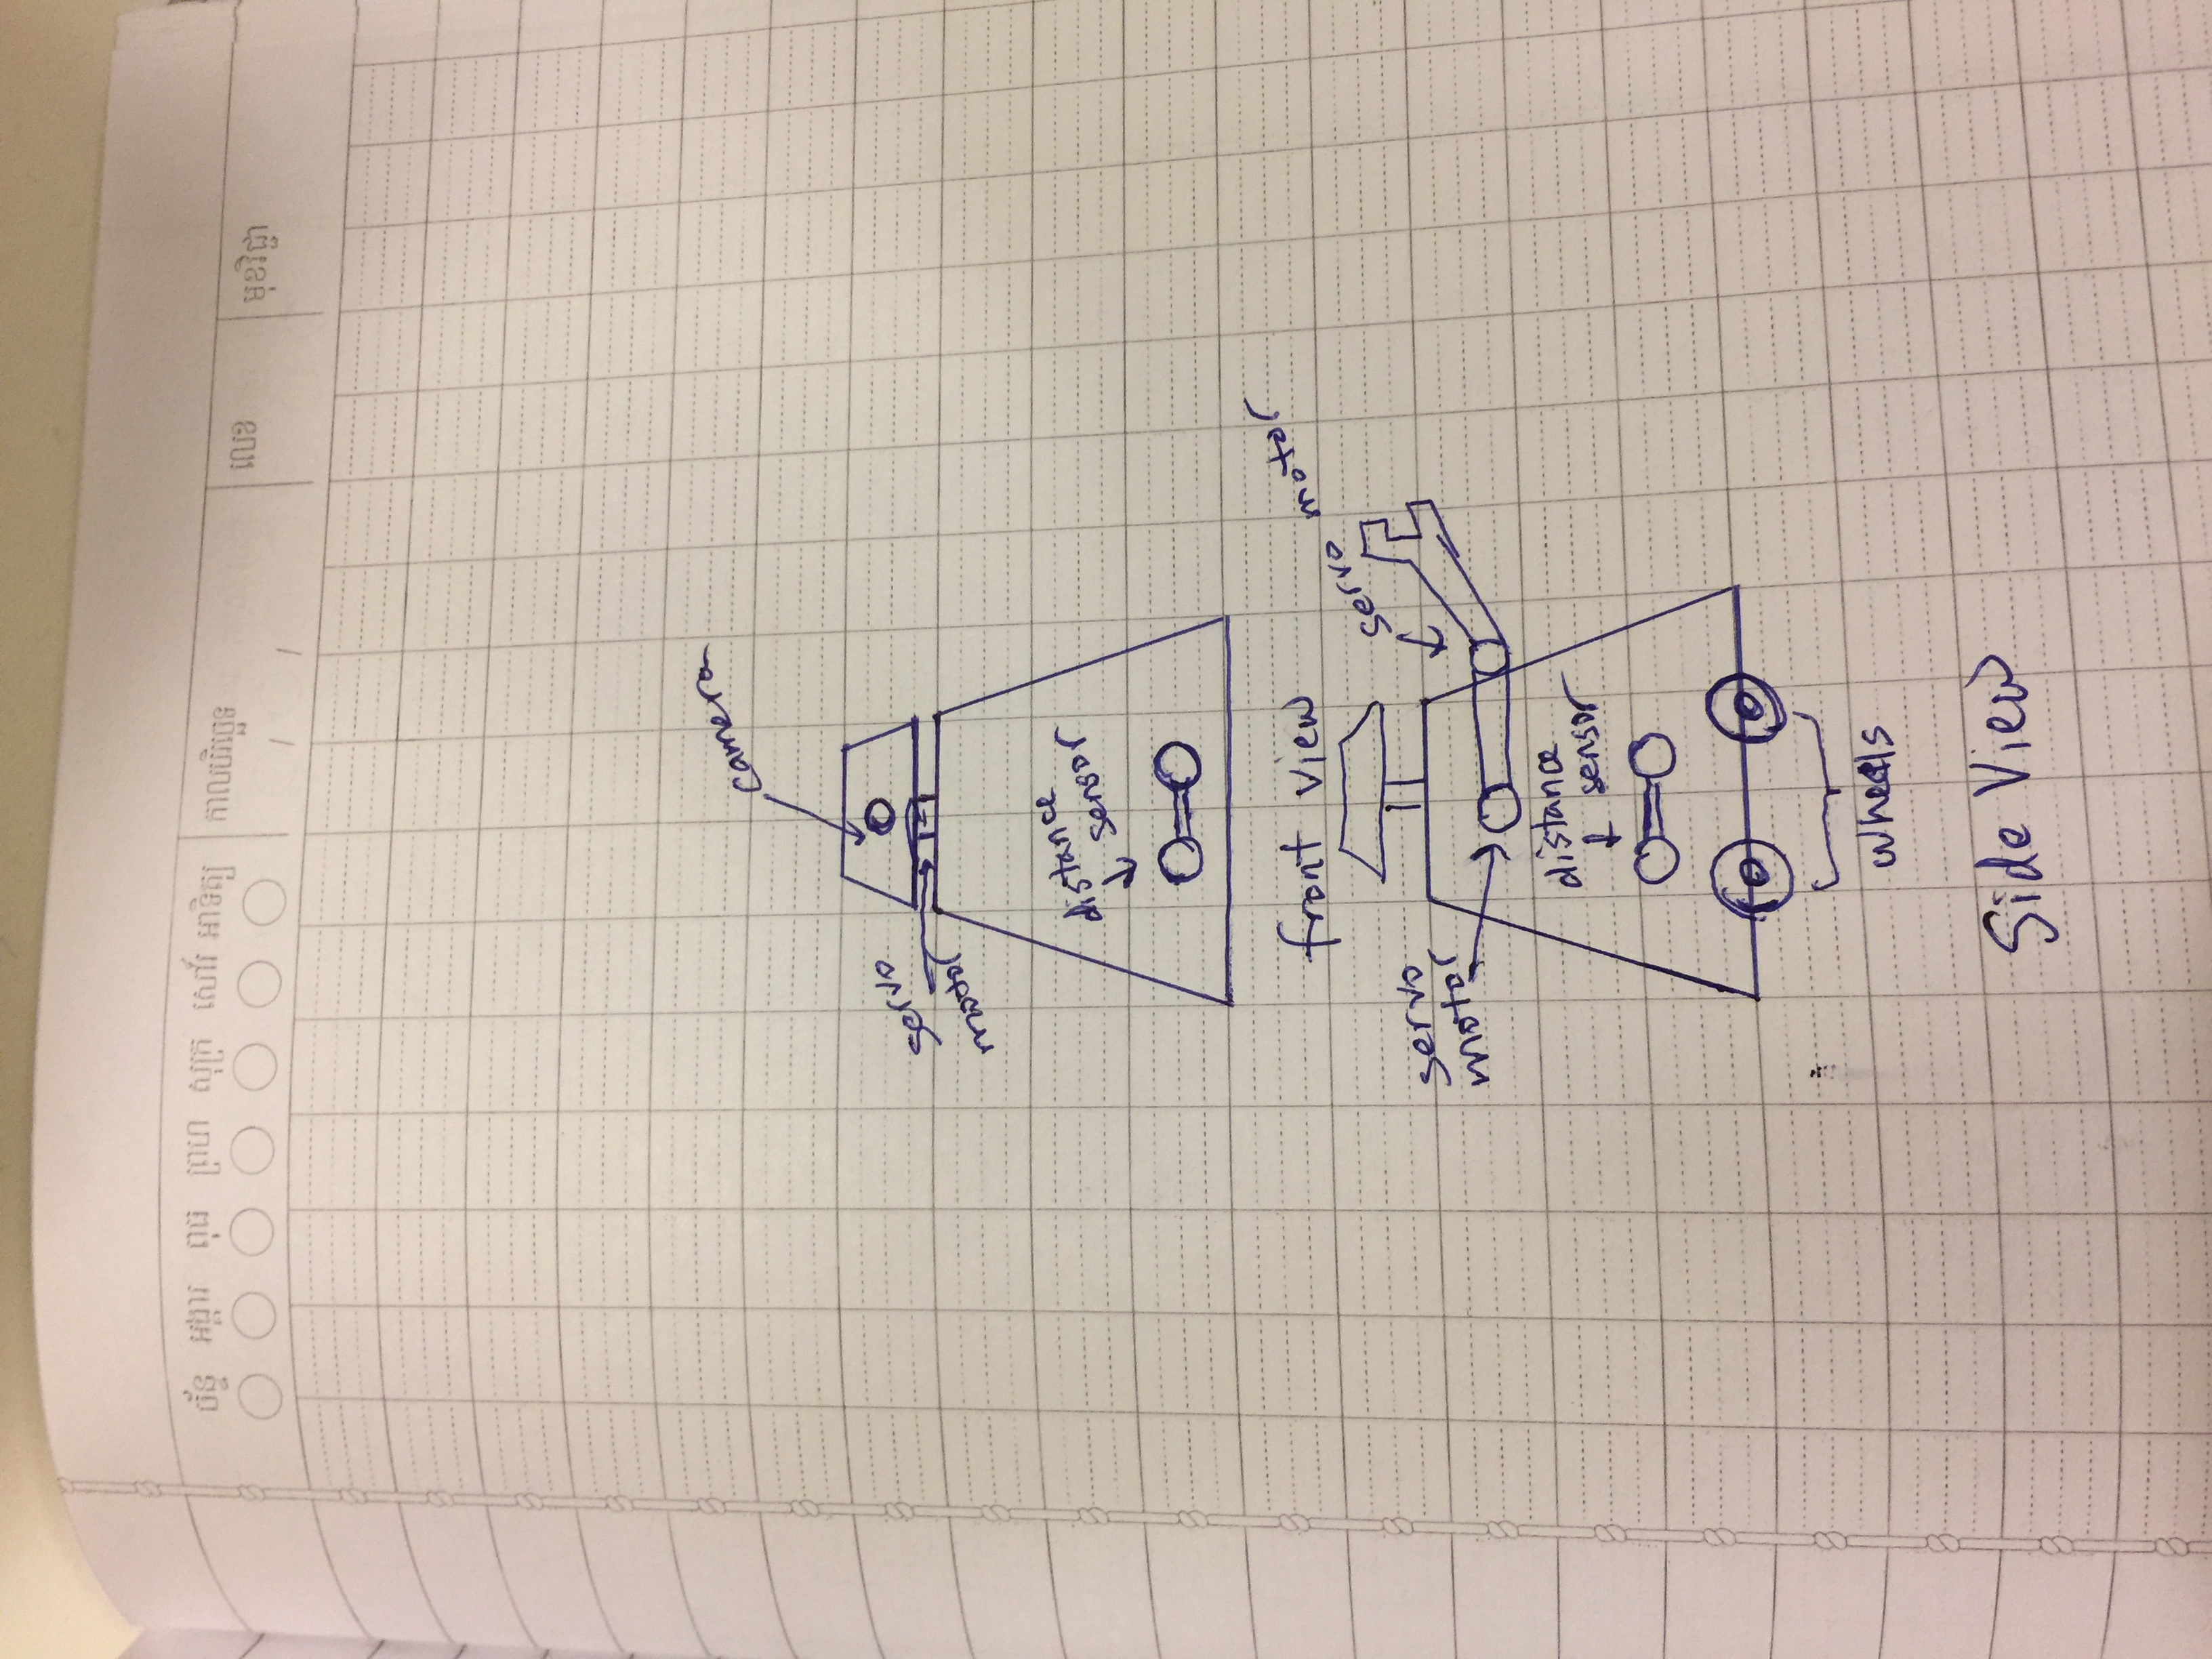 ច័ន្ទ អង្គារ ពុធ ព្រហ សុក្រ សៅរ៍ អាទិត្យ កាលបរិច្ឆេទ លេខ មុខវិជ្ជា
/ /
camera
servo
motor
distance
sensor
front view
servo motor
servo
motor
distance
sensor
wheels
Side View